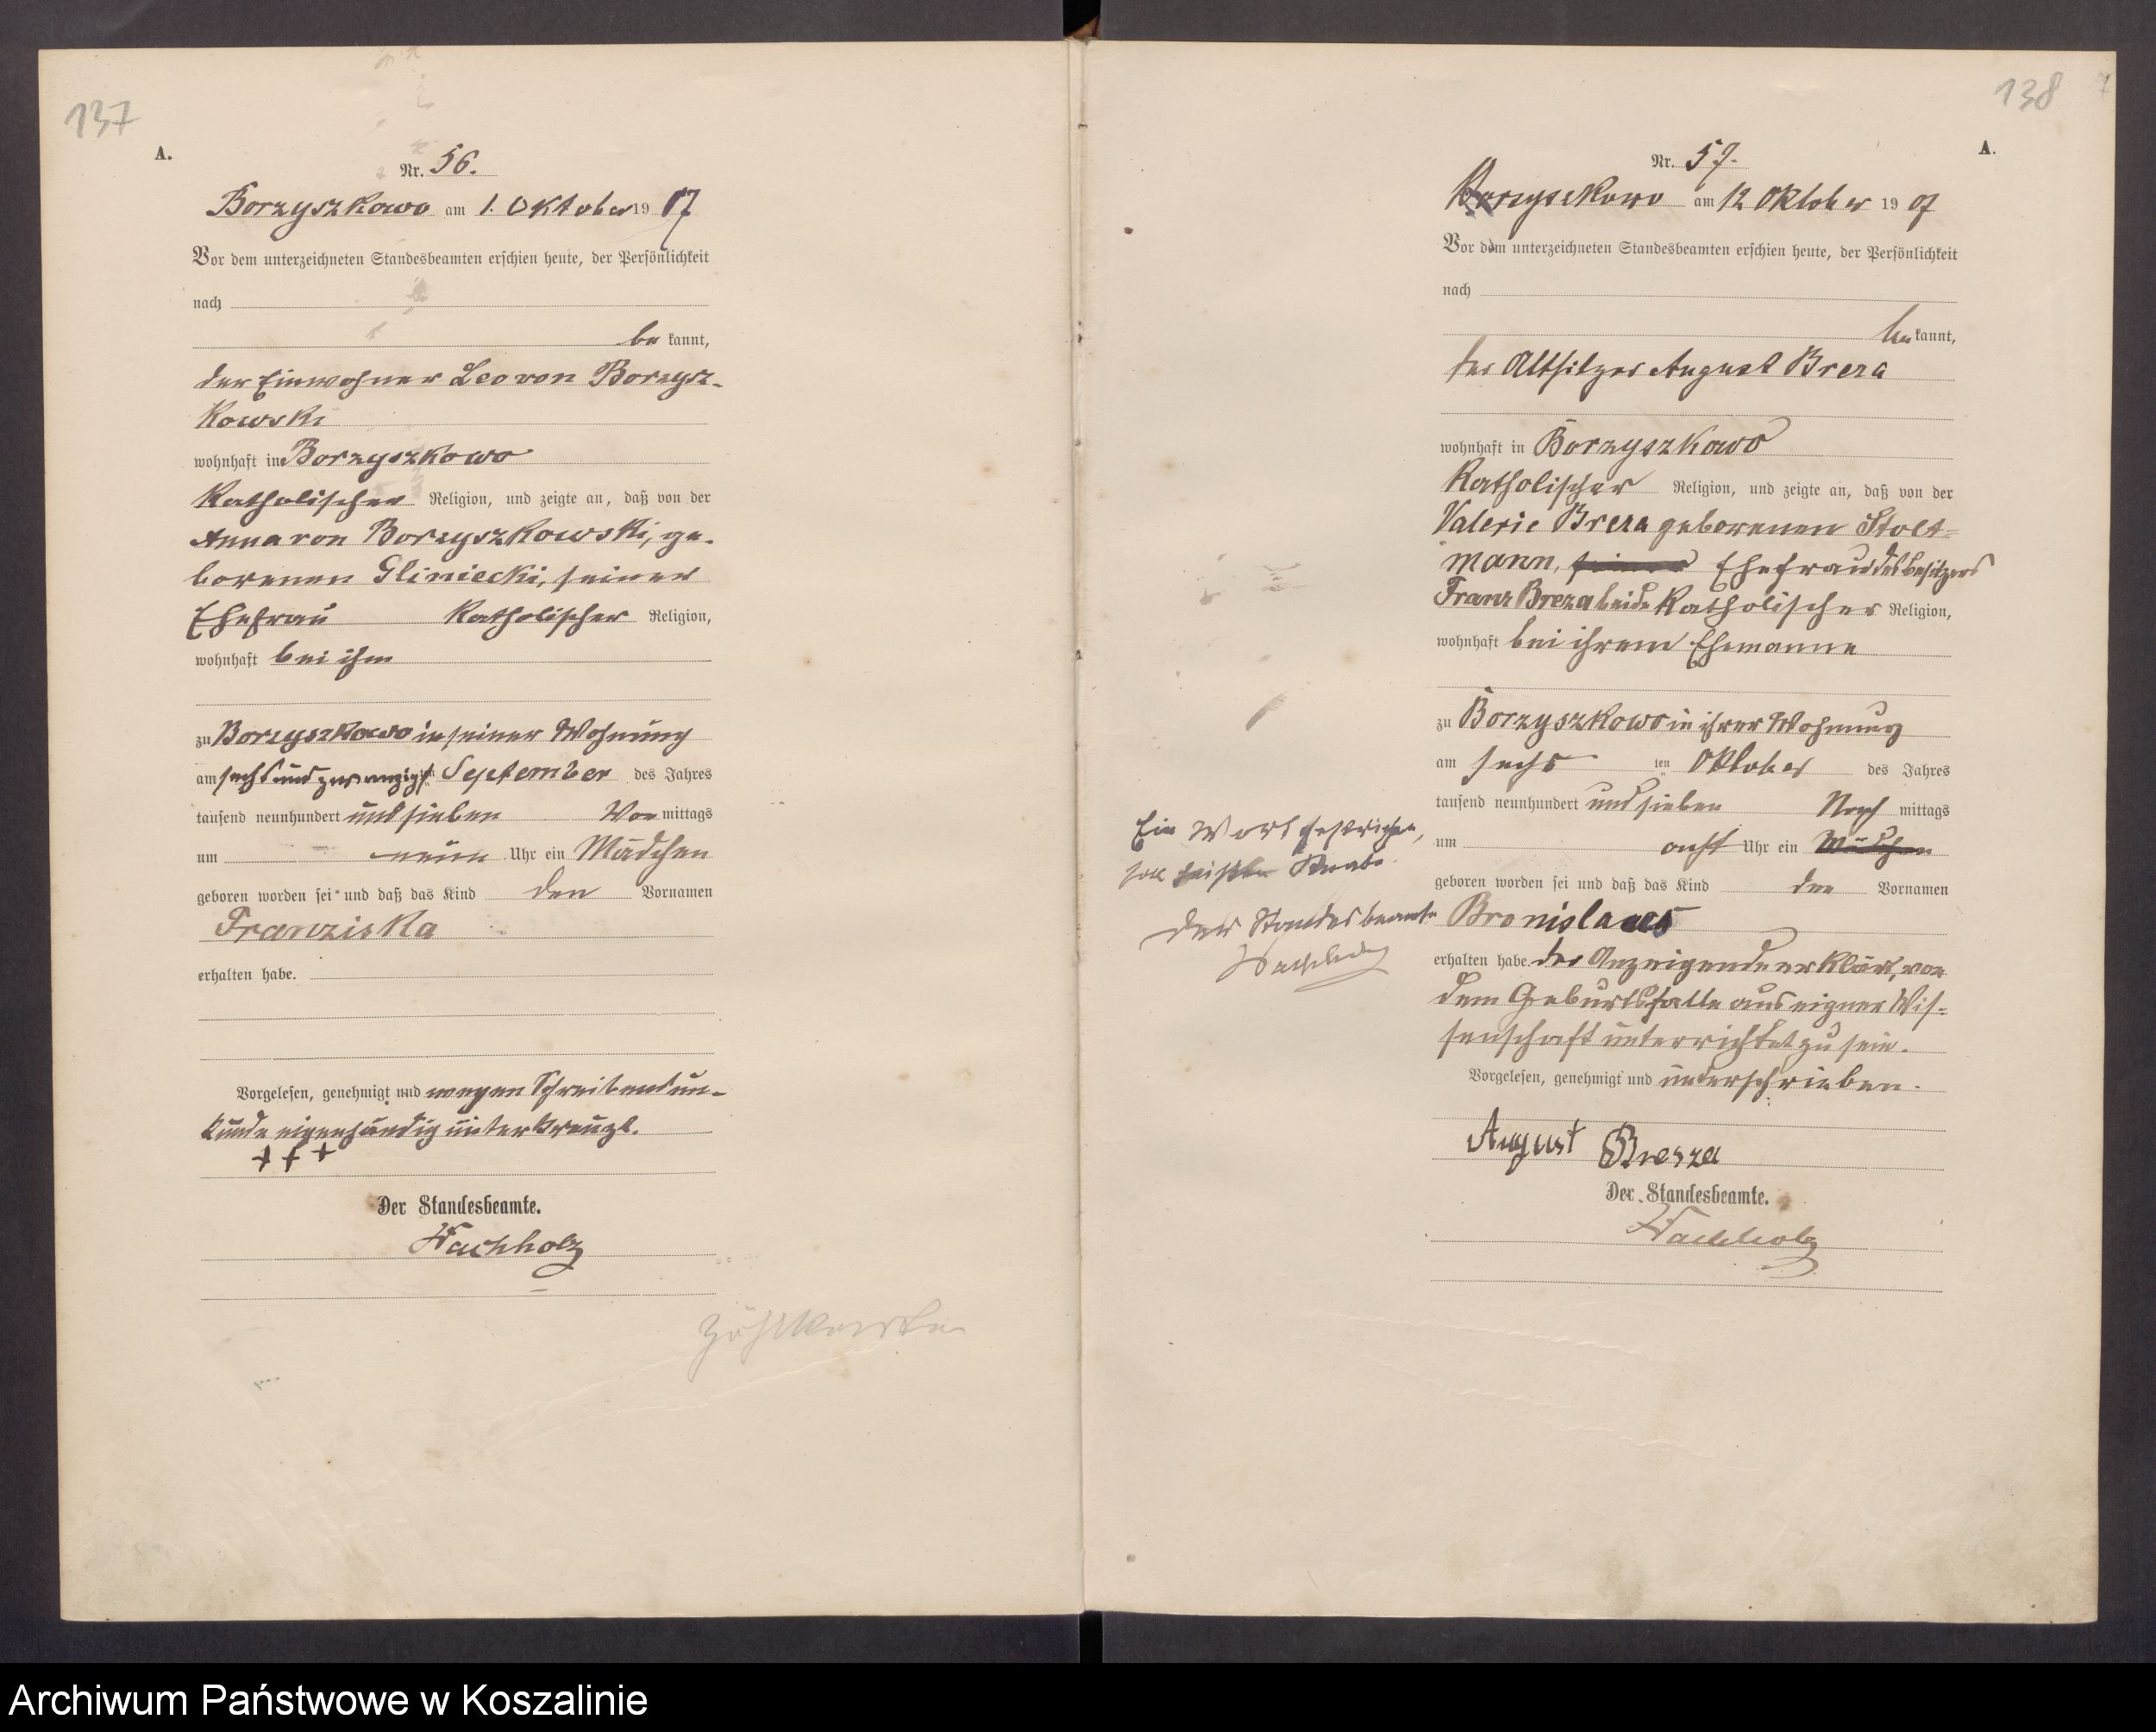 137
A.
Nr. 56.
Borzyszkowo am 1. Oktober 1907
Vor dem unterzeichneten Standesbeamten erschien heute, der Persönlichkeit
nach
be kannt,
der Einwohner Leo von Borzysz-
kowski
wohnhaft in Borzyszkowo
katholischer Religion, und zeigte an, daß von der
Anna von Borzyszkowski, ge-
borenen Gliniecki, seiner
Ehefrau katholischer Religion,
wohnhaft bei ihm
zu Borzyszkowo in seiner Wohnung
am sechsundzwanzigsten September des Jahres
tausend neunhundert und sieben Vor mittags
um neun Uhr ein Mädchen
geboren worden sei und daß das Kind den Vornamen
Franziska
erhalten habe.
Vorgelesen, genehmigt und wegen Schreibensun-
kunde eigenhändig unterkreuzt.
+ + +
Der Standesbeamte.
Wachholz
138
A.
Nr. 57.
Borzyszkowo am 12 Oktober 1907
Vor dem unterzeichneten Standesbeamten erschien heute, der Persönlichkeit
nach
be kannt,
der Altsitzer August Breza
wohnhaft in Borzyszkowo
katholischer Religion, und zeigte an, daß von der
Valerie Breza geborenen Stolt=
mann, seiner Ehefrau des Besitzers
Franz Breza beide katholischer Religion,
wohnhaft bei ihrem Ehemanne
zu Borzyszkowo in ihrer Wohnung
am sechs ten Oktober des Jahres
tausend neunhundert und sieben Nach mittags
um acht Uhr ein Mädchen
geboren worden sei und daß das Kind den Vornamen
Bronislaus
erhalten habe. Der Anzeigende erklärt, von
dem Geburtsfalle aus eigner Wis=
senschaft unterrichtet zu sein.
Vorgelesen, genehmigt und unterschrieben.
August Breza
Der Standesbeamte.
Wachholz
Ein Wort gestrichen,
soll heißen Knabe.
Der Standesbeamte
Wachholz
Archiwum Państwowe w Koszalinie